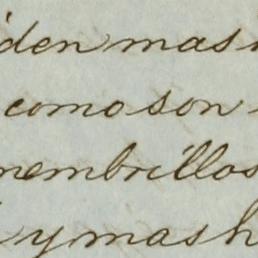 iden mas
como son
membrillos
y mas h